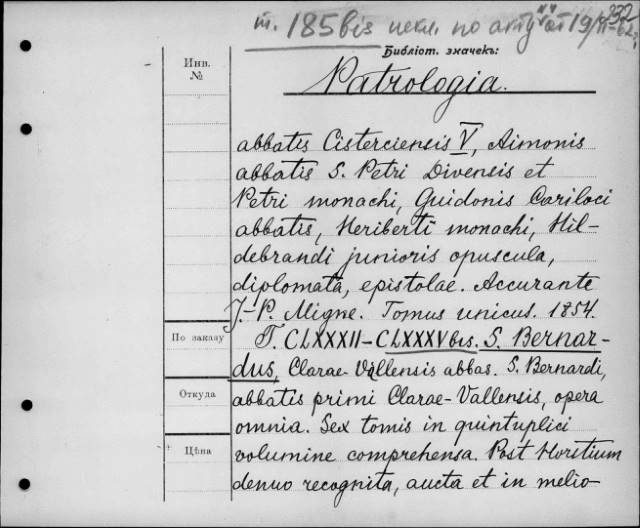 т. 185 bis искл. по акту № от 19/VI-62 г.
332
Библіот. значекъ:
Инв.
№
Patrologia.
abbatis Cisterciensis V, Aimonis
abbatis S. Petri Divensis et
Petri monachi, Guidonis Cariloci
abbatis, Heriberti monachi, Hil-
debrandi junioris opuscula,
diplomata, epistolae. Accurante
J.-P. Migne. Tomus unicus. 1854.
По заказу
T. CLXXXII–CLXXXV bis. S. Bernar-
dus, Clarae-Vallensis abbas. S. Bernardi,
Откуда
abbatis primi Clarae-Vallensis, opera
omnia. Sex tomis in quintuplici
Цѣна
volumine comprehensa. Post Horstium
denuo recognita, aucta et in melio-